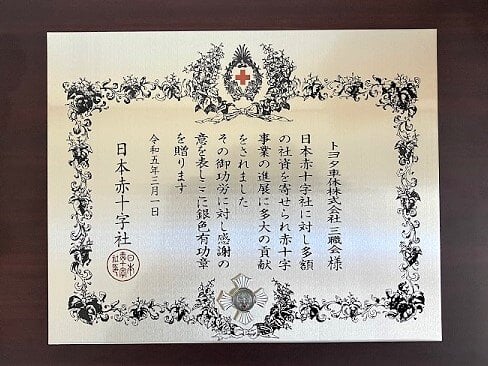 トヨタ車体株式会社 三職会 様
日本赤十字社に対し多額
の社資を寄せられ赤十字
事業の進展に多大の貢献
をされました
その御功労に対し感謝の
意を表しここに銀色有功章
を贈ります
令和五年三月一日
日本赤十字社